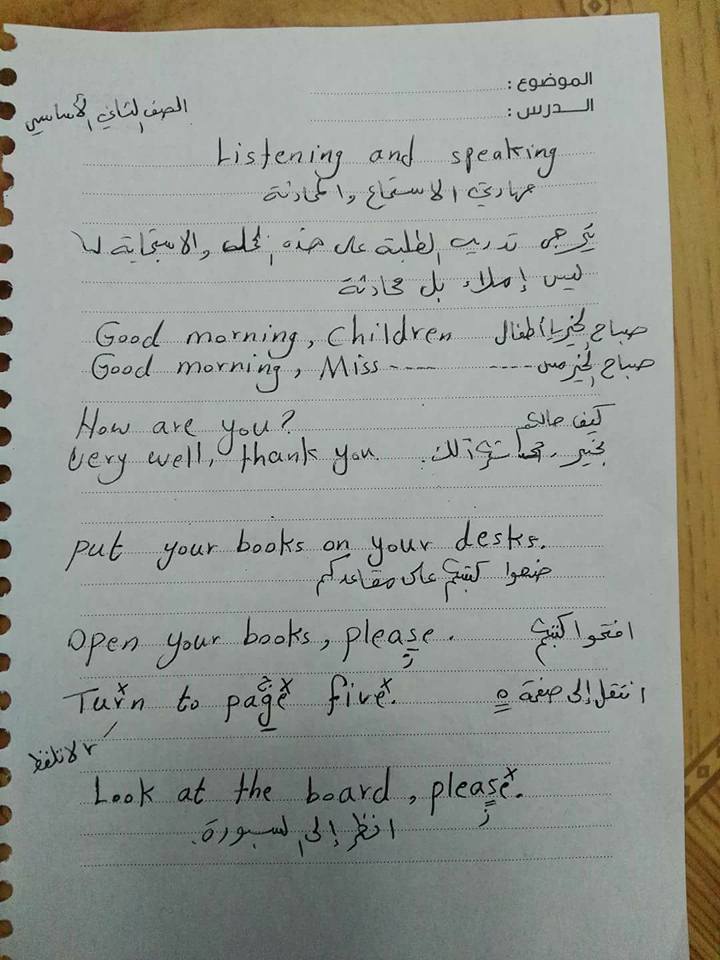 الموضوع :
الـــدرس :
الصف الثاني الأساسي
Listening and speaking
مهارتي الاستماع والمحادثة
يرجى تدريب الطلبة على هذه الجمل والاستجابة لها
ليس إملاء بل محادثة
Good morning, children صباح الخير يا أطفال
Good morning, Miss ---- صباح الخير مس ----
How are you? كيف حالكم
Very well, thank you. بخير، شكرا لك.
put your books on your desks.
ضعوا كتبكم على مقاعدكم
Open your books, please. افتحوا كتبكم
ز
Turn to page five. انتقل إلى صفحة ٥
r لا تلفظ
Look at the board, please.
ز
انظر إلى السبورة.